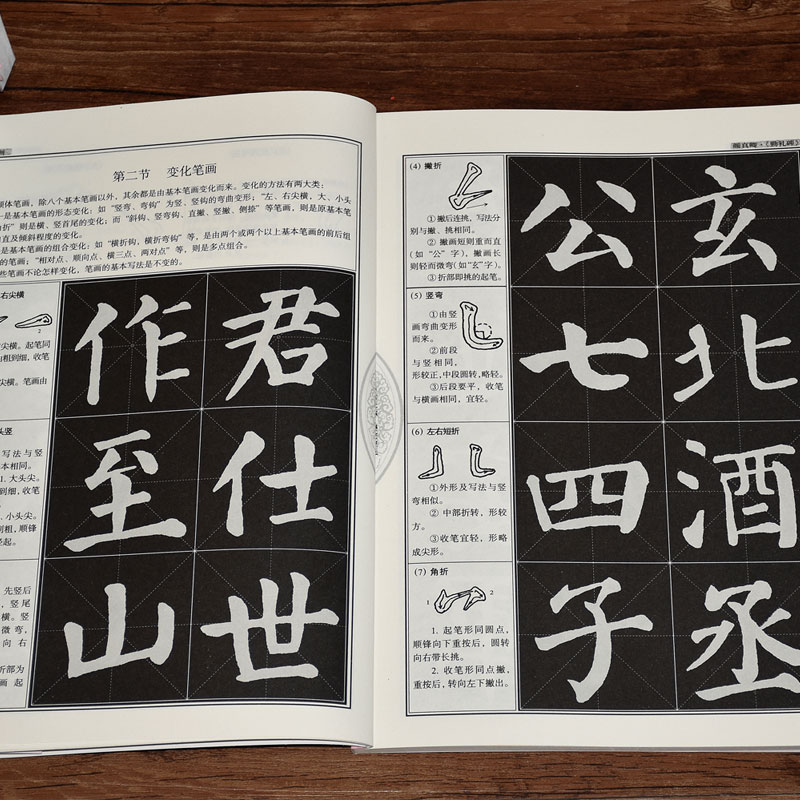 第二节 变化笔画
颜体笔画，除八个基本笔画以外，其余都由基本笔画变化而来。变化的方法有两大类：
一是基本笔画的形态变化：如“竖弯、弯钩”为竖、竖钩的弯曲变形；“左、右尖横、大、小头
折”则是横、竖首尾的变化；而“斜钩、竖弯钩、直撇、竖撇、侧捺”等笔画，则是原基本笔
直及倾斜程度的变化。
是基本笔画的组合变化：如“横折钩，横折弯钩”等，是由两个或两个以上基本笔画的前后组
的笔画；“相对点、顺向点、横三点、两对点”等，则是多点组合。
些笔画不论怎样变化，笔画的基本写法是不变的。
右尖横
2
尖横。起笔同
由粗到细，收笔
尖横。笔画由
头竖
写法与竖
本相同。
1. 大头尖。
到细，收笔
小头尖。
到粗，顺锋
轻起。
先竖后
竖尾
横。竖
微弯，
向右
折部为
画起
作 君
至 仕
山 世
颜真卿·《勤礼碑》
(4) 撇折
①撇后连挑，写法分
别与撇、挑相同。
②撇画短则重而直
(如“公”字)，撇画长
则轻而微弯(如“玄”字)。
③折部即挑的起笔。
(5) 竖弯
①由竖
画弯曲变形
而来。
②前段
与竖相同，
形较正，中段圆转，略轻。
③后段要平，收笔
与横画相同，宜轻。
(6) 左右短折
①外形及写法与竖
弯相似。
②中部折转，形较
方。
③收笔宜轻，形略
成尖形。
(7) 角折
1 2
1. 起笔形同圆点，
顺锋向下重按后，圆转
向右带长挑。
2. 收笔形同点撇，
重按后，转向左下撇出。
公 玄
七 北
四 酒
子 丞